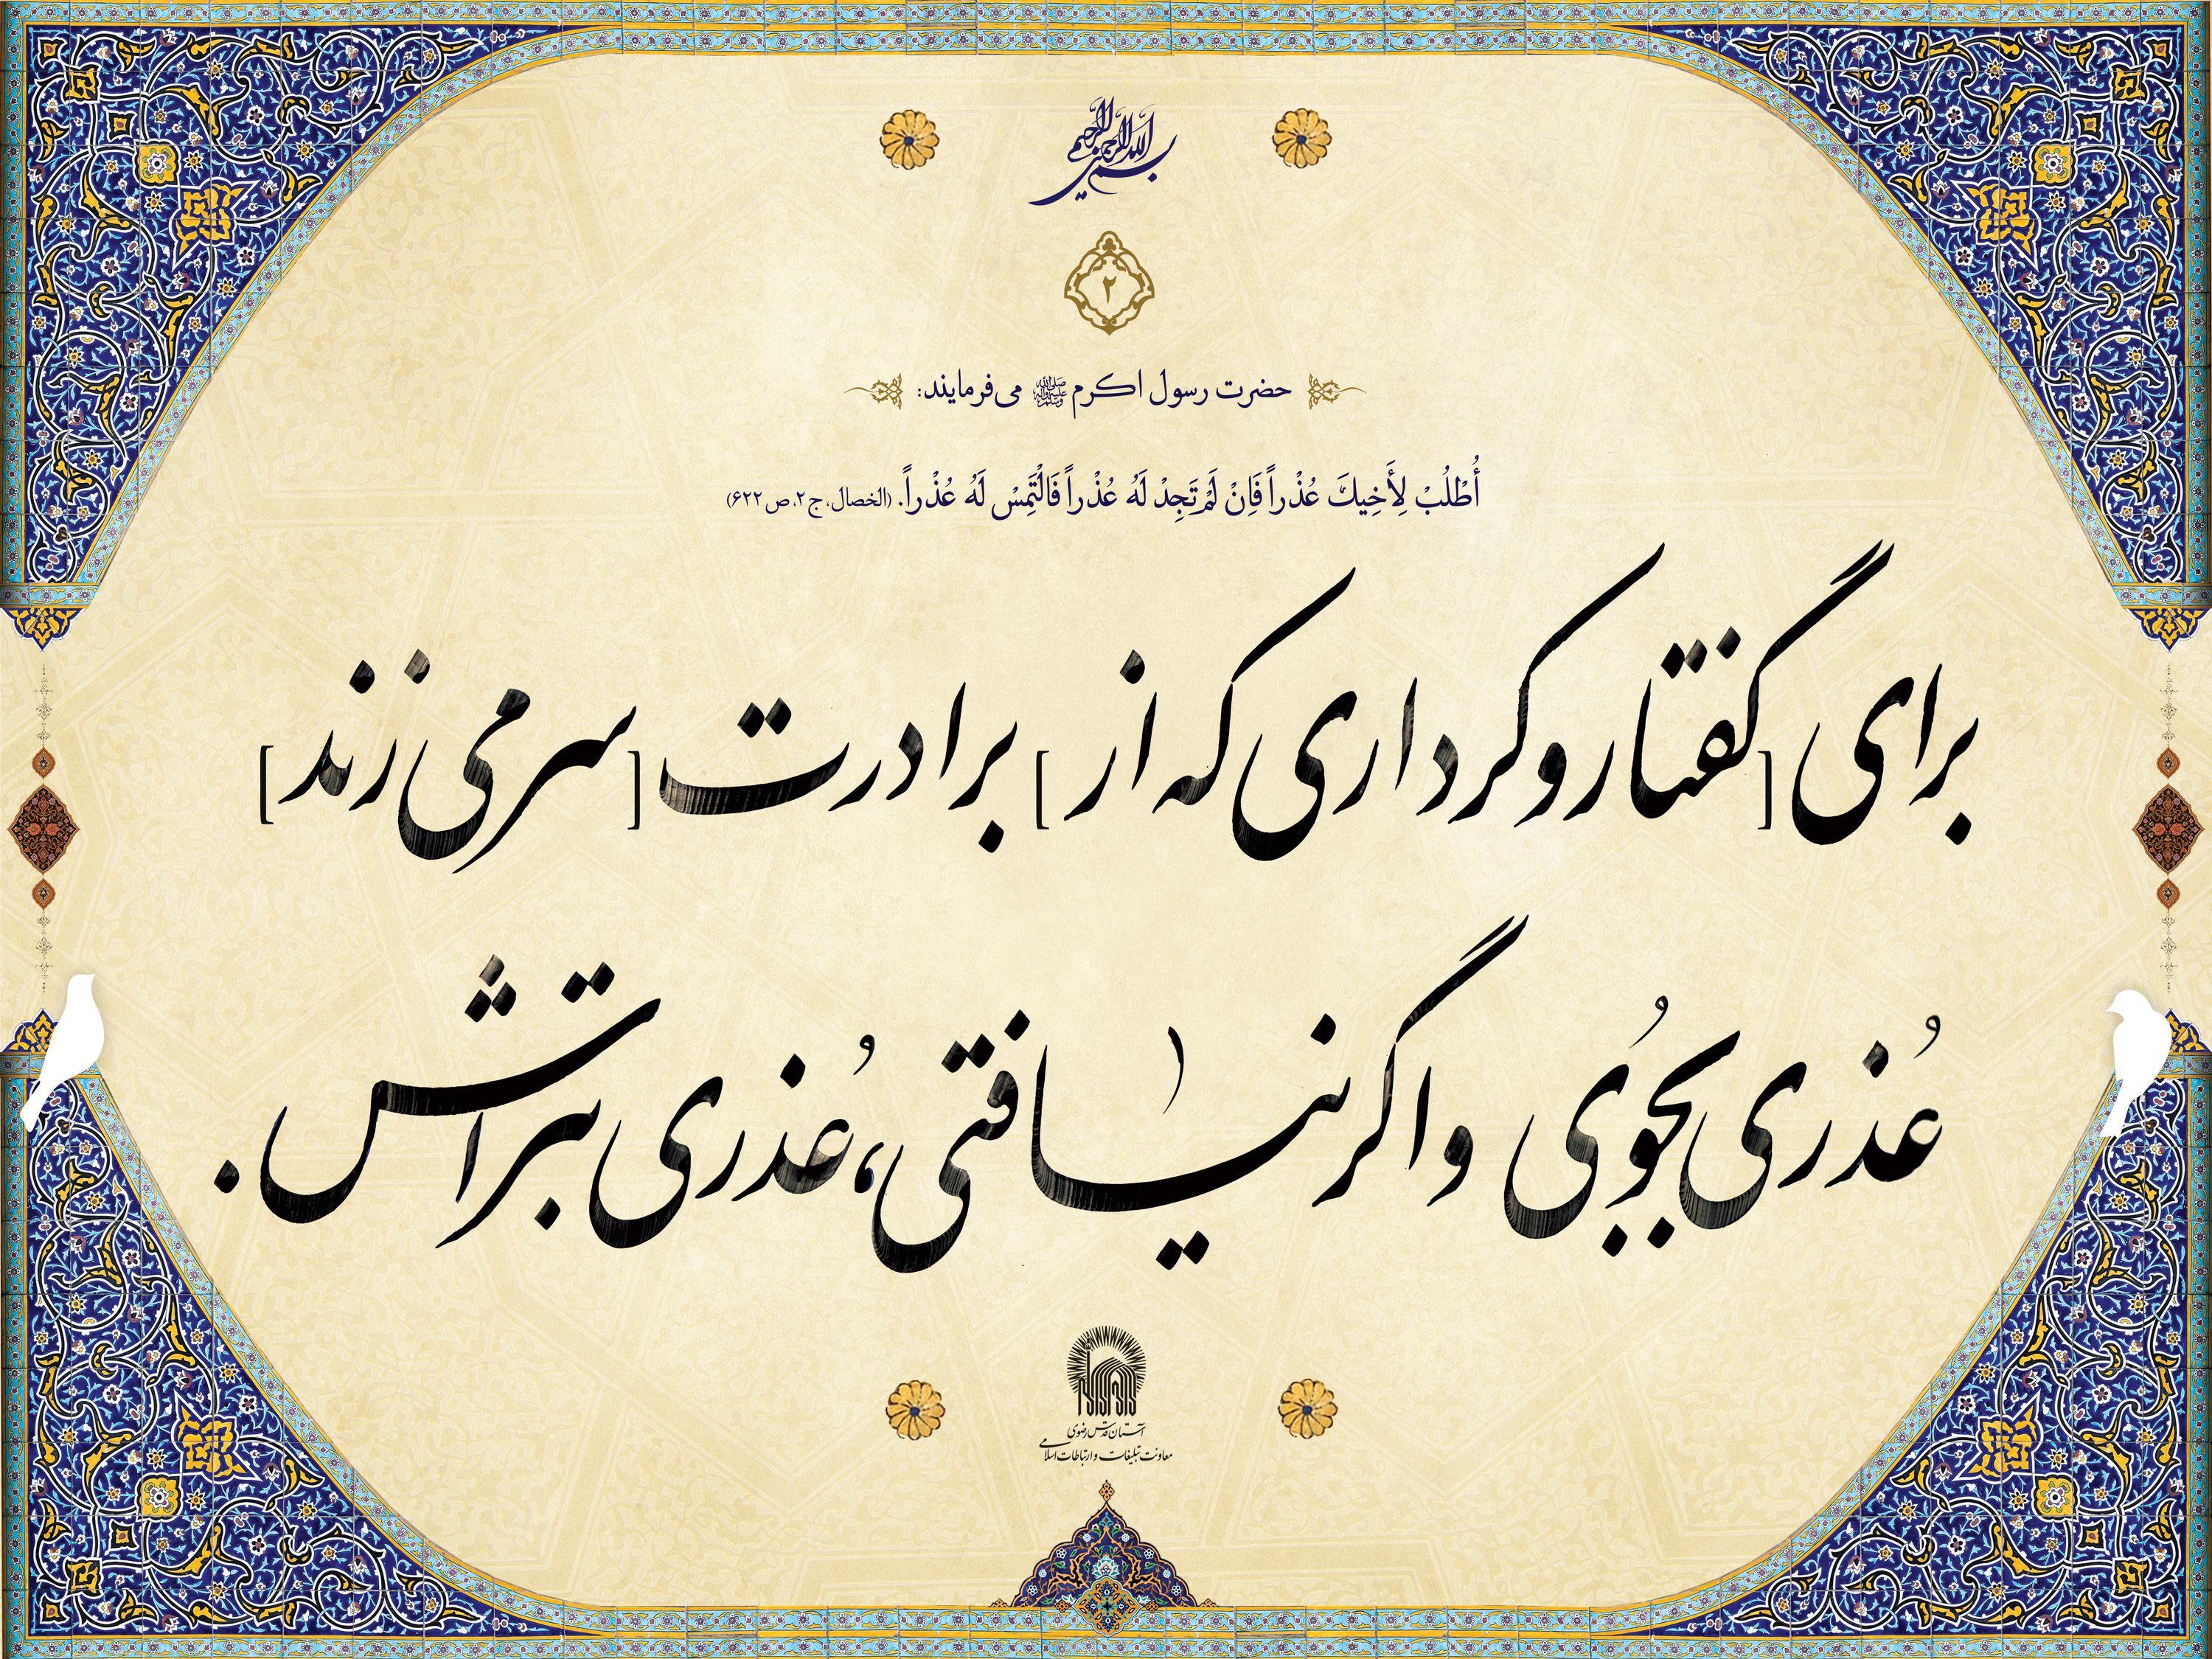 بسم الله الرحمن الرحیم
۲
حضرت رسول اکرم ﷺ می‌فرمایند:
أُطْلُبْ لِأَخِيكَ عُذْراً فَاِنْ لَمْ تَجِدْ لَهُ عُذْراً فَالْتَمِسْ لَهُ عُذْراً. (الخصال، ج۲، ص۶۲۲)
برای [گفتار و کرداری که از] برادرت [سر می زند]
عُذری بجُوبی و اگر نیافتی، عُذری بتراش.
آستان قدس رضوی
معاونت تبلیغات و ارتباطات اسلامی